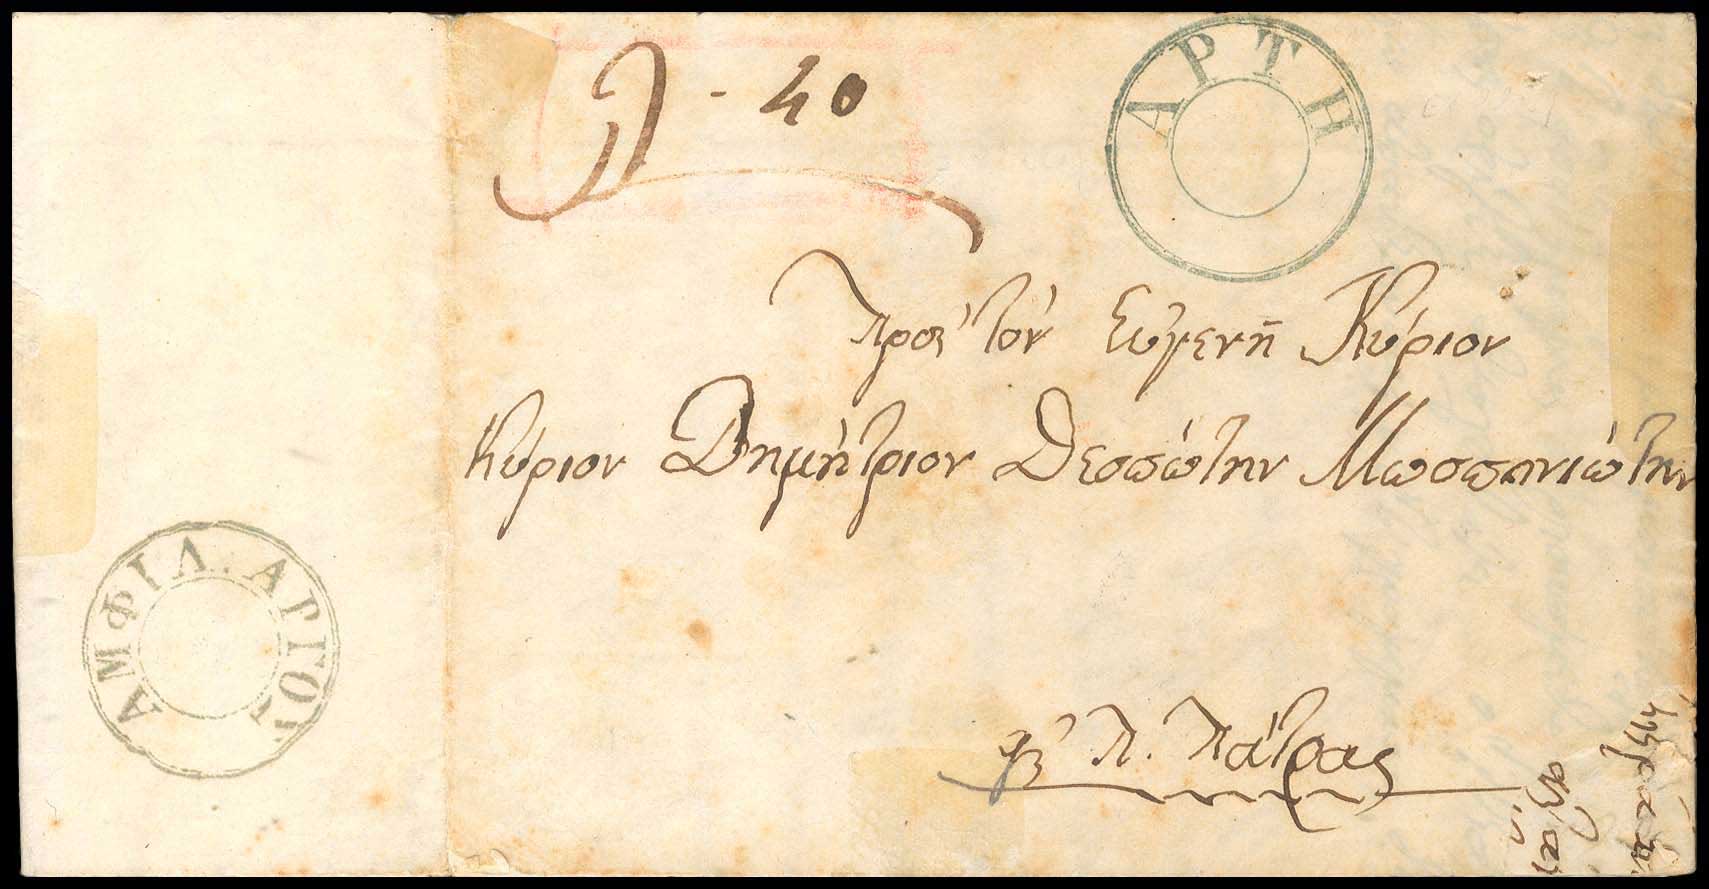 - 40
ΑΡΤΗ
Πρὸς τὸν Εὐγενῆ Κύριον
Κύριον Δημήτριον Δεσπότην Μοσπηνιώτην
ΑΜΦΙΛ. ΑΡΓΟΣ
Π. Πάτρας